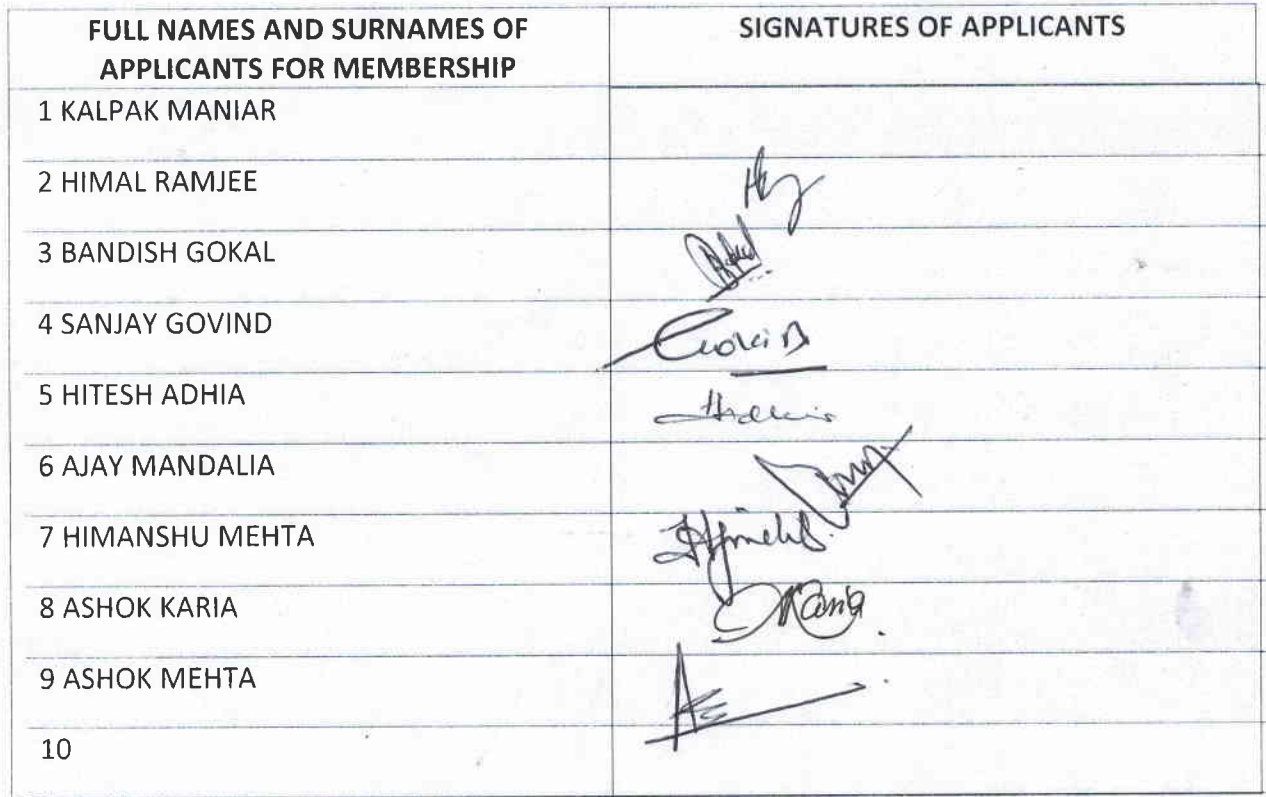 FULL NAMES AND SURNAMES OF
APPLICANTS FOR MEMBERSHIP
SIGNATURES OF APPLICANTS
1 KALPAK MANIAR
2 HIMAL RAMJEE
3 BANDISH GOKAL
4 SANJAY GOVIND
5 HITESH ADHIA
6 AJAY MANDALIA
7 HIMANSHU MEHTA
8 ASHOK KARIA
9 ASHOK MEHTA
10